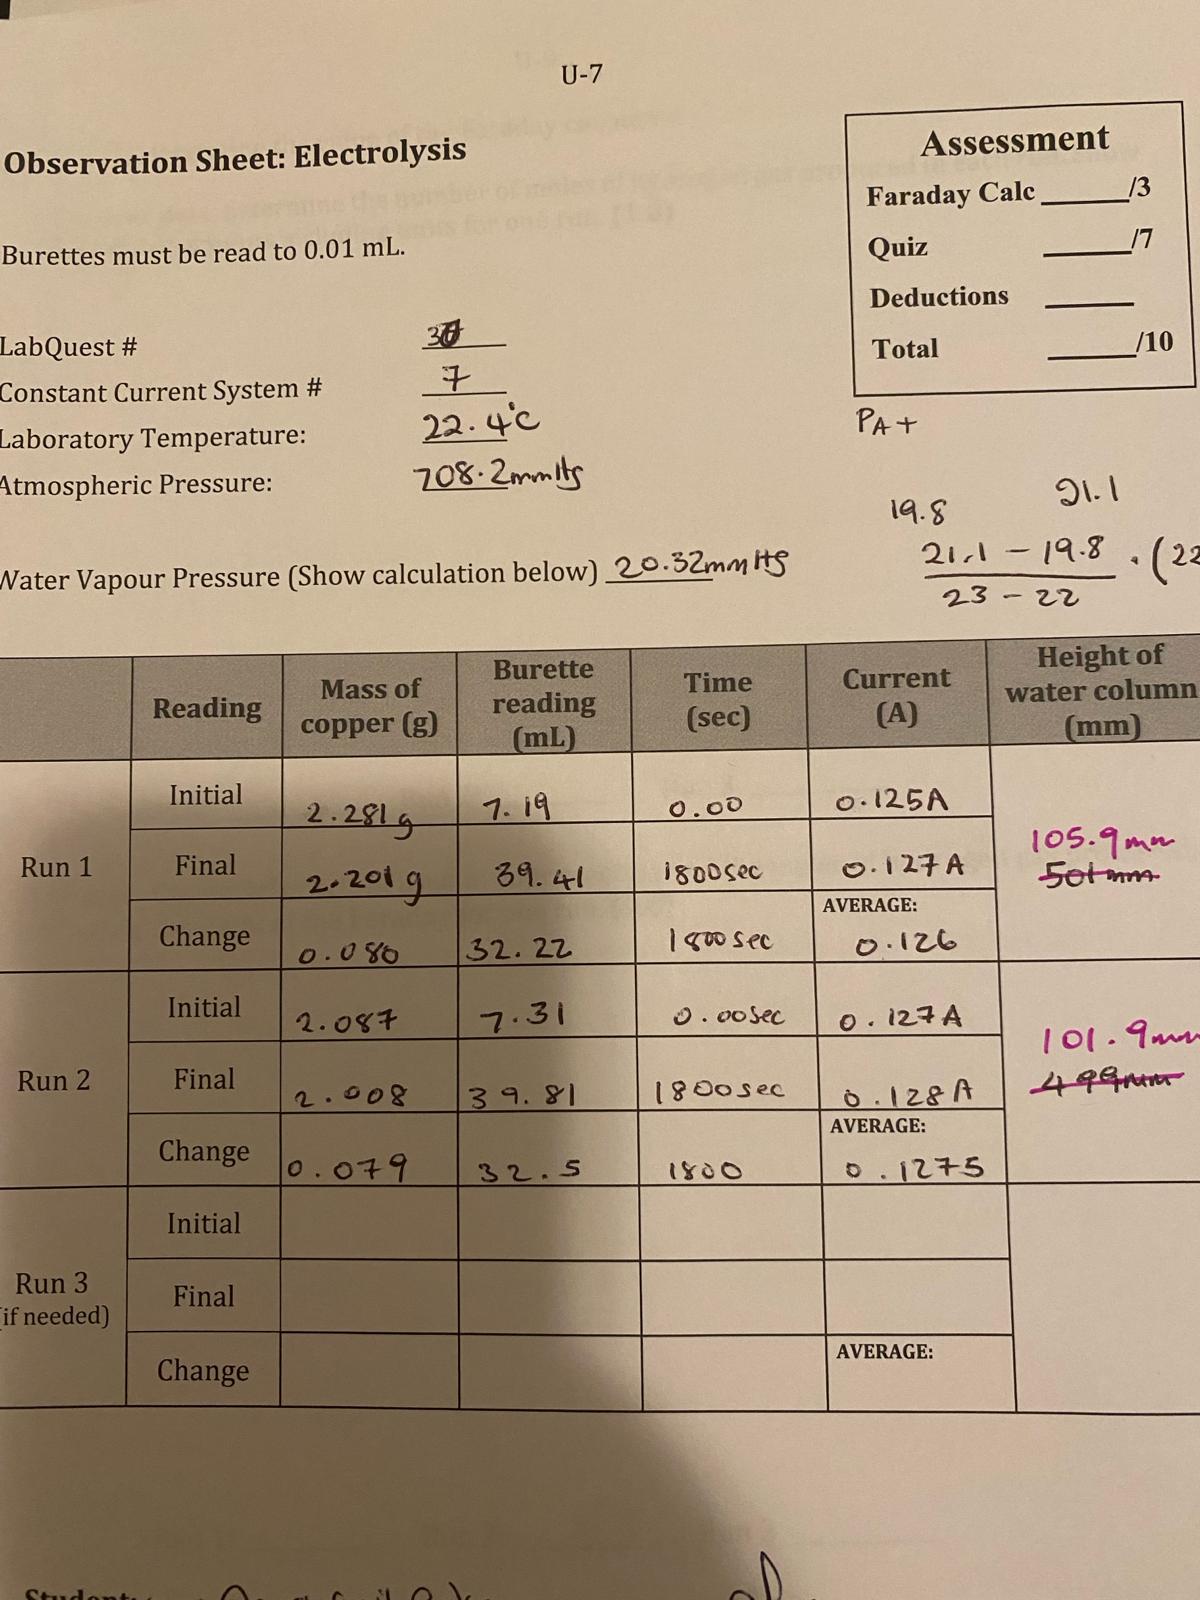 U-7
Observation Sheet: Electrolysis
Burettes must be read to 0.01 mL.
Assessment
Faraday Calc ______/3
Quiz ______/7
Deductions ______
Total ______/10
LabQuest #
Constant Current System # 7
Laboratory Temperature: 22.4°C
Atmospheric Pressure: 708.2mmHg
PA+
19.8 21.1
21.1 - 19.8 . (22
23 - 22
Water Vapour Pressure (Show calculation below) 20.32mmHg
Reading Mass of copper (g) Burette reading (mL) Time (sec) Current (A) Height of water column (mm)
Run 1
Initial 2.281g 7.19 0.00 0.125A
105.9mm
501mm
Final 2.201g 39.41 1800sec 0.127A
AVERAGE:
Change 0.080 32.22 1800sec 0.126
Run 2
Initial 2.087 7.31 0.00sec 0.127A
101.9mm
499mm
Final 2.008 39.81 1800sec 0.128A
AVERAGE:
Change 0.079 32.5 1800 0.1275
Run 3
(if needed)
Initial
Final
Change AVERAGE: